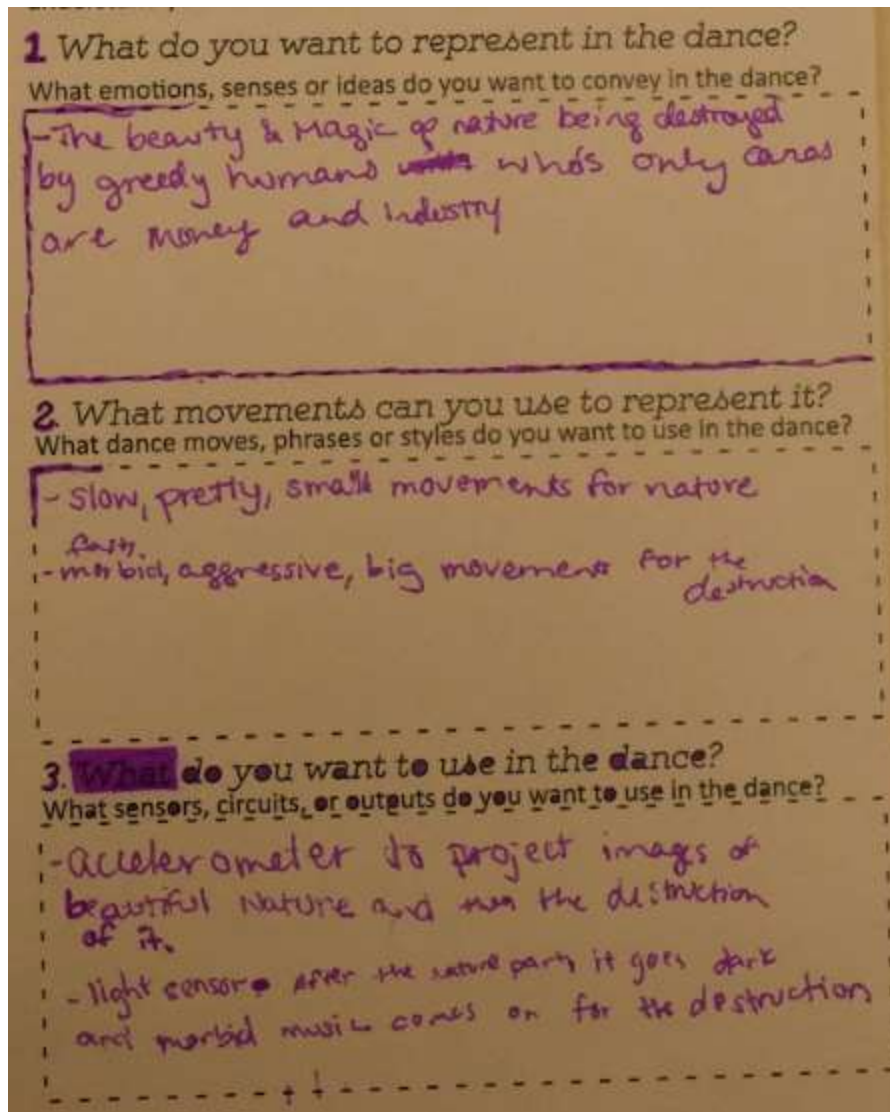 1 What do you want to represent in the dance?
What emotions, senses or ideas do you want to convey in the dance?
-The beauty & Magic of nature being destroyed
by greedy humans who's only cares
are money and industry
2 What movements can you use to represent it?
What dance moves, phrases or styles do you want to use in the dance?
- slow, pretty, small movements for nature
fast,
- morbid, aggressive, big movements for the
destruction
3. What do you want to use in the dance?
What sensors, circuits, or outputs do you want to use in the dance?
- accelerometer to project images of
beautiful Nature and then the destruction
of it.
- light sensor After the nature part, it goes dark
and morbid music comes on for the destruction